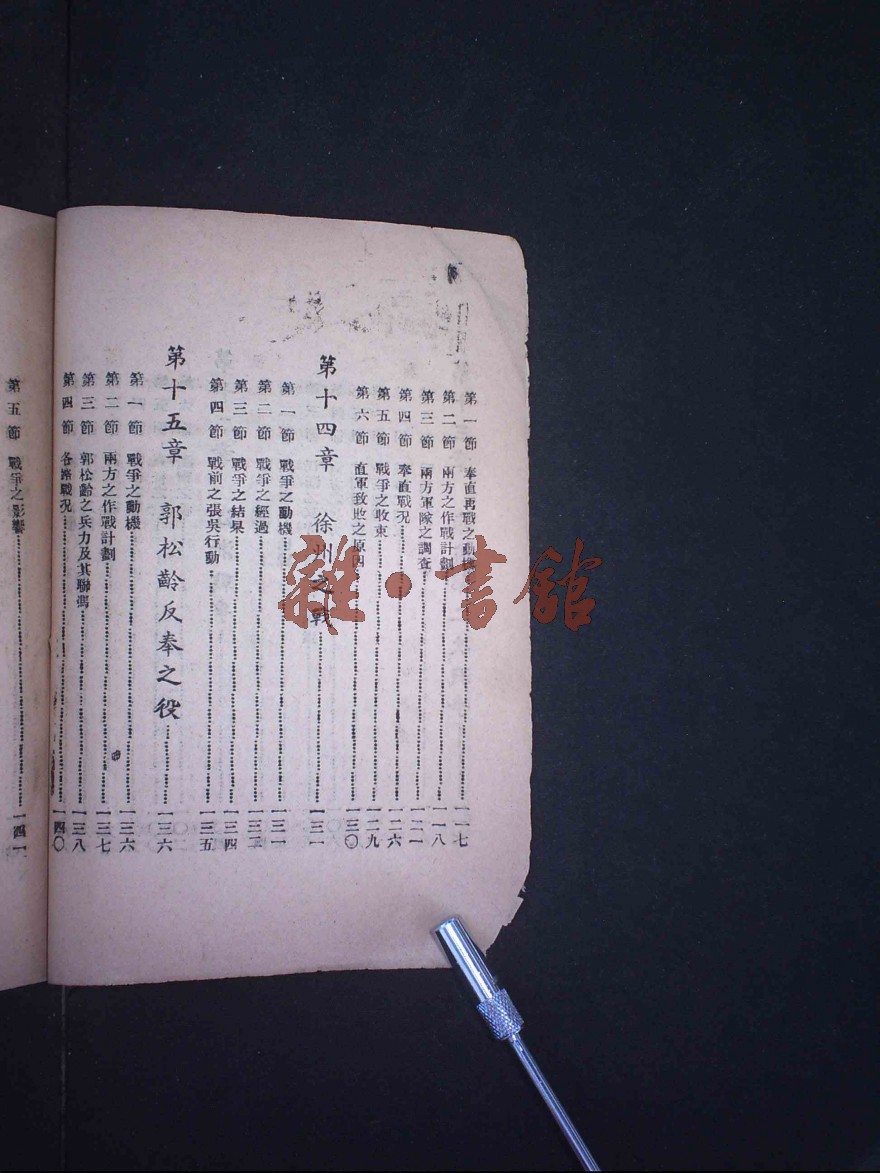 第一節　奉直再戰之動機………一一七
第二節　兩方之作戰計劃………一一八
第三節　兩方軍隊之調查………一二一
第四節　奉直戰況………一二六
第五節　戰爭之收束………一二九
第六節　直軍致敗之原因………一三〇
第十四章　徐州之戰………一三一
第一節　戰爭之動機………一三一
第二節　戰爭之經過………一三二
第三節　戰爭之結果………一三四
第四節　戰前之張吳行動………一三五
第十五章　郭松齡反奉之役………一三六
第一節　戰爭之動機………一三六
第二節　兩方之作戰計劃………一三七
第三節　郭松齡之兵力及其聯馮………一三八
第四節　各路戰況………一四〇
第五節　戰爭之影響………一四一
雜·書館